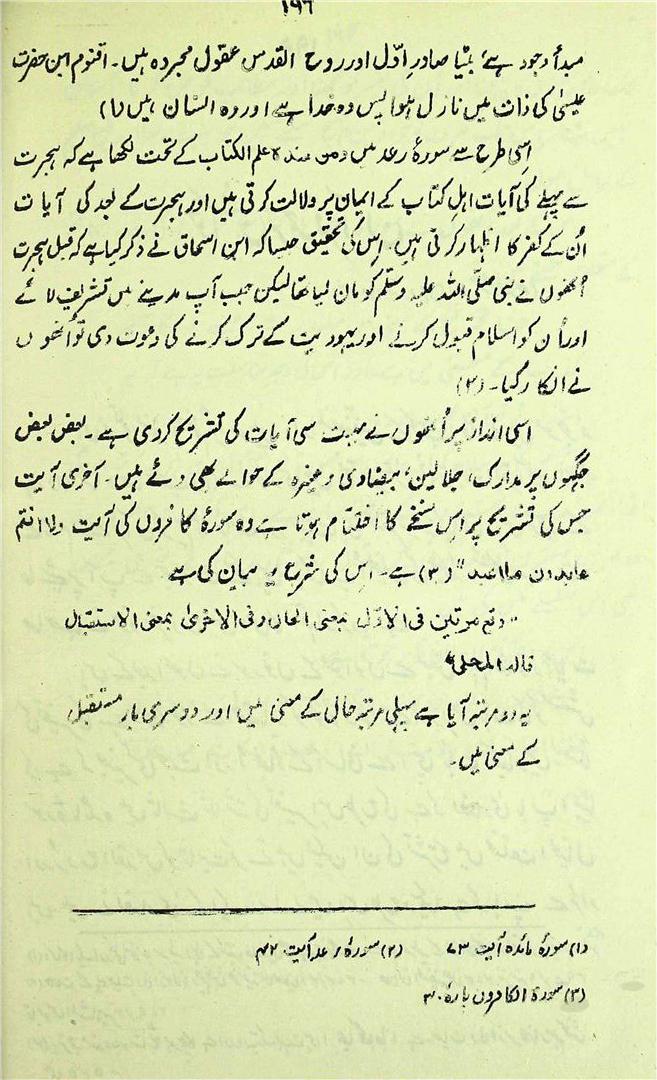 ۱۹۶
مبدأ وجود ہے، بیٹا صادرِ اوّل اور روح القدس عقول مجردہ ہیں۔ اقنوم ابن حضرت
عیسیٰ کی ذات میں نازل ہوا پس وہ خدا ہے اور وہ انسان ہیں (۱)
اِسی طرح سے سورۂ رعد میں ومن عندہ علم الکتاب کے تحت لکھا ہے کہ ہجرت
سے پہلے کی آیات اہلِ کتاب کے ایمان پر دلالت کرتی ہیں اور ہجرت کے بعد کی آیات
اُن کے کفر کا اظہار کرتی ہیں۔ اِس کی تحقیق جیسا کہ ابن اسحاق نے ذکر کیا ہے کہ قبل ہجرت
اُنھوں نے نبی صلّی اللہ علیہ وسلّم کو مان لیا تھا لیکن جب آپ مدینے میں تشریف لائے
اور اُن کو اسلام قبول کرنے اور یہودیت کے ترک کرنے کی دعوت دی تو اُنھوں
نے انکار کر گیا۔ (۲)
اسی انداز پر اُنھوں نے بہت سی آیات کی تشریح کر دی ہے۔ بعض بعض
جگہوں پر مدارک، جلالین، بیضاوی وغیرہ کے حوالے بھی دئے ہیں۔ آخری آیت
جس کی تشریح پر اِس نسخے کا اختتام ہوتا ہے وہ سورۂ کافروں کی آیت ولا انتم
عابدون ما اعبد" (۳) ہے۔ اِس کی شرح یہ بیان کی ہے
"وقع مرتین فی الاوّل بمعنی الحال وفی الاخریٰ بمعنی الاستقبال
قالہ المحلی"
یہ دو مرتبہ آیا ہے پہلی مرتبہ حال کے معنیٰ میں اور دوسری بار مستقبل
کے معنیٰ میں۔
(۱) سورۂ مائدہ آیت ۷۳ (۲) سورۂ رعد آیت ۴۲
(۳) سورۃ الکافرون پارہ ۳۰